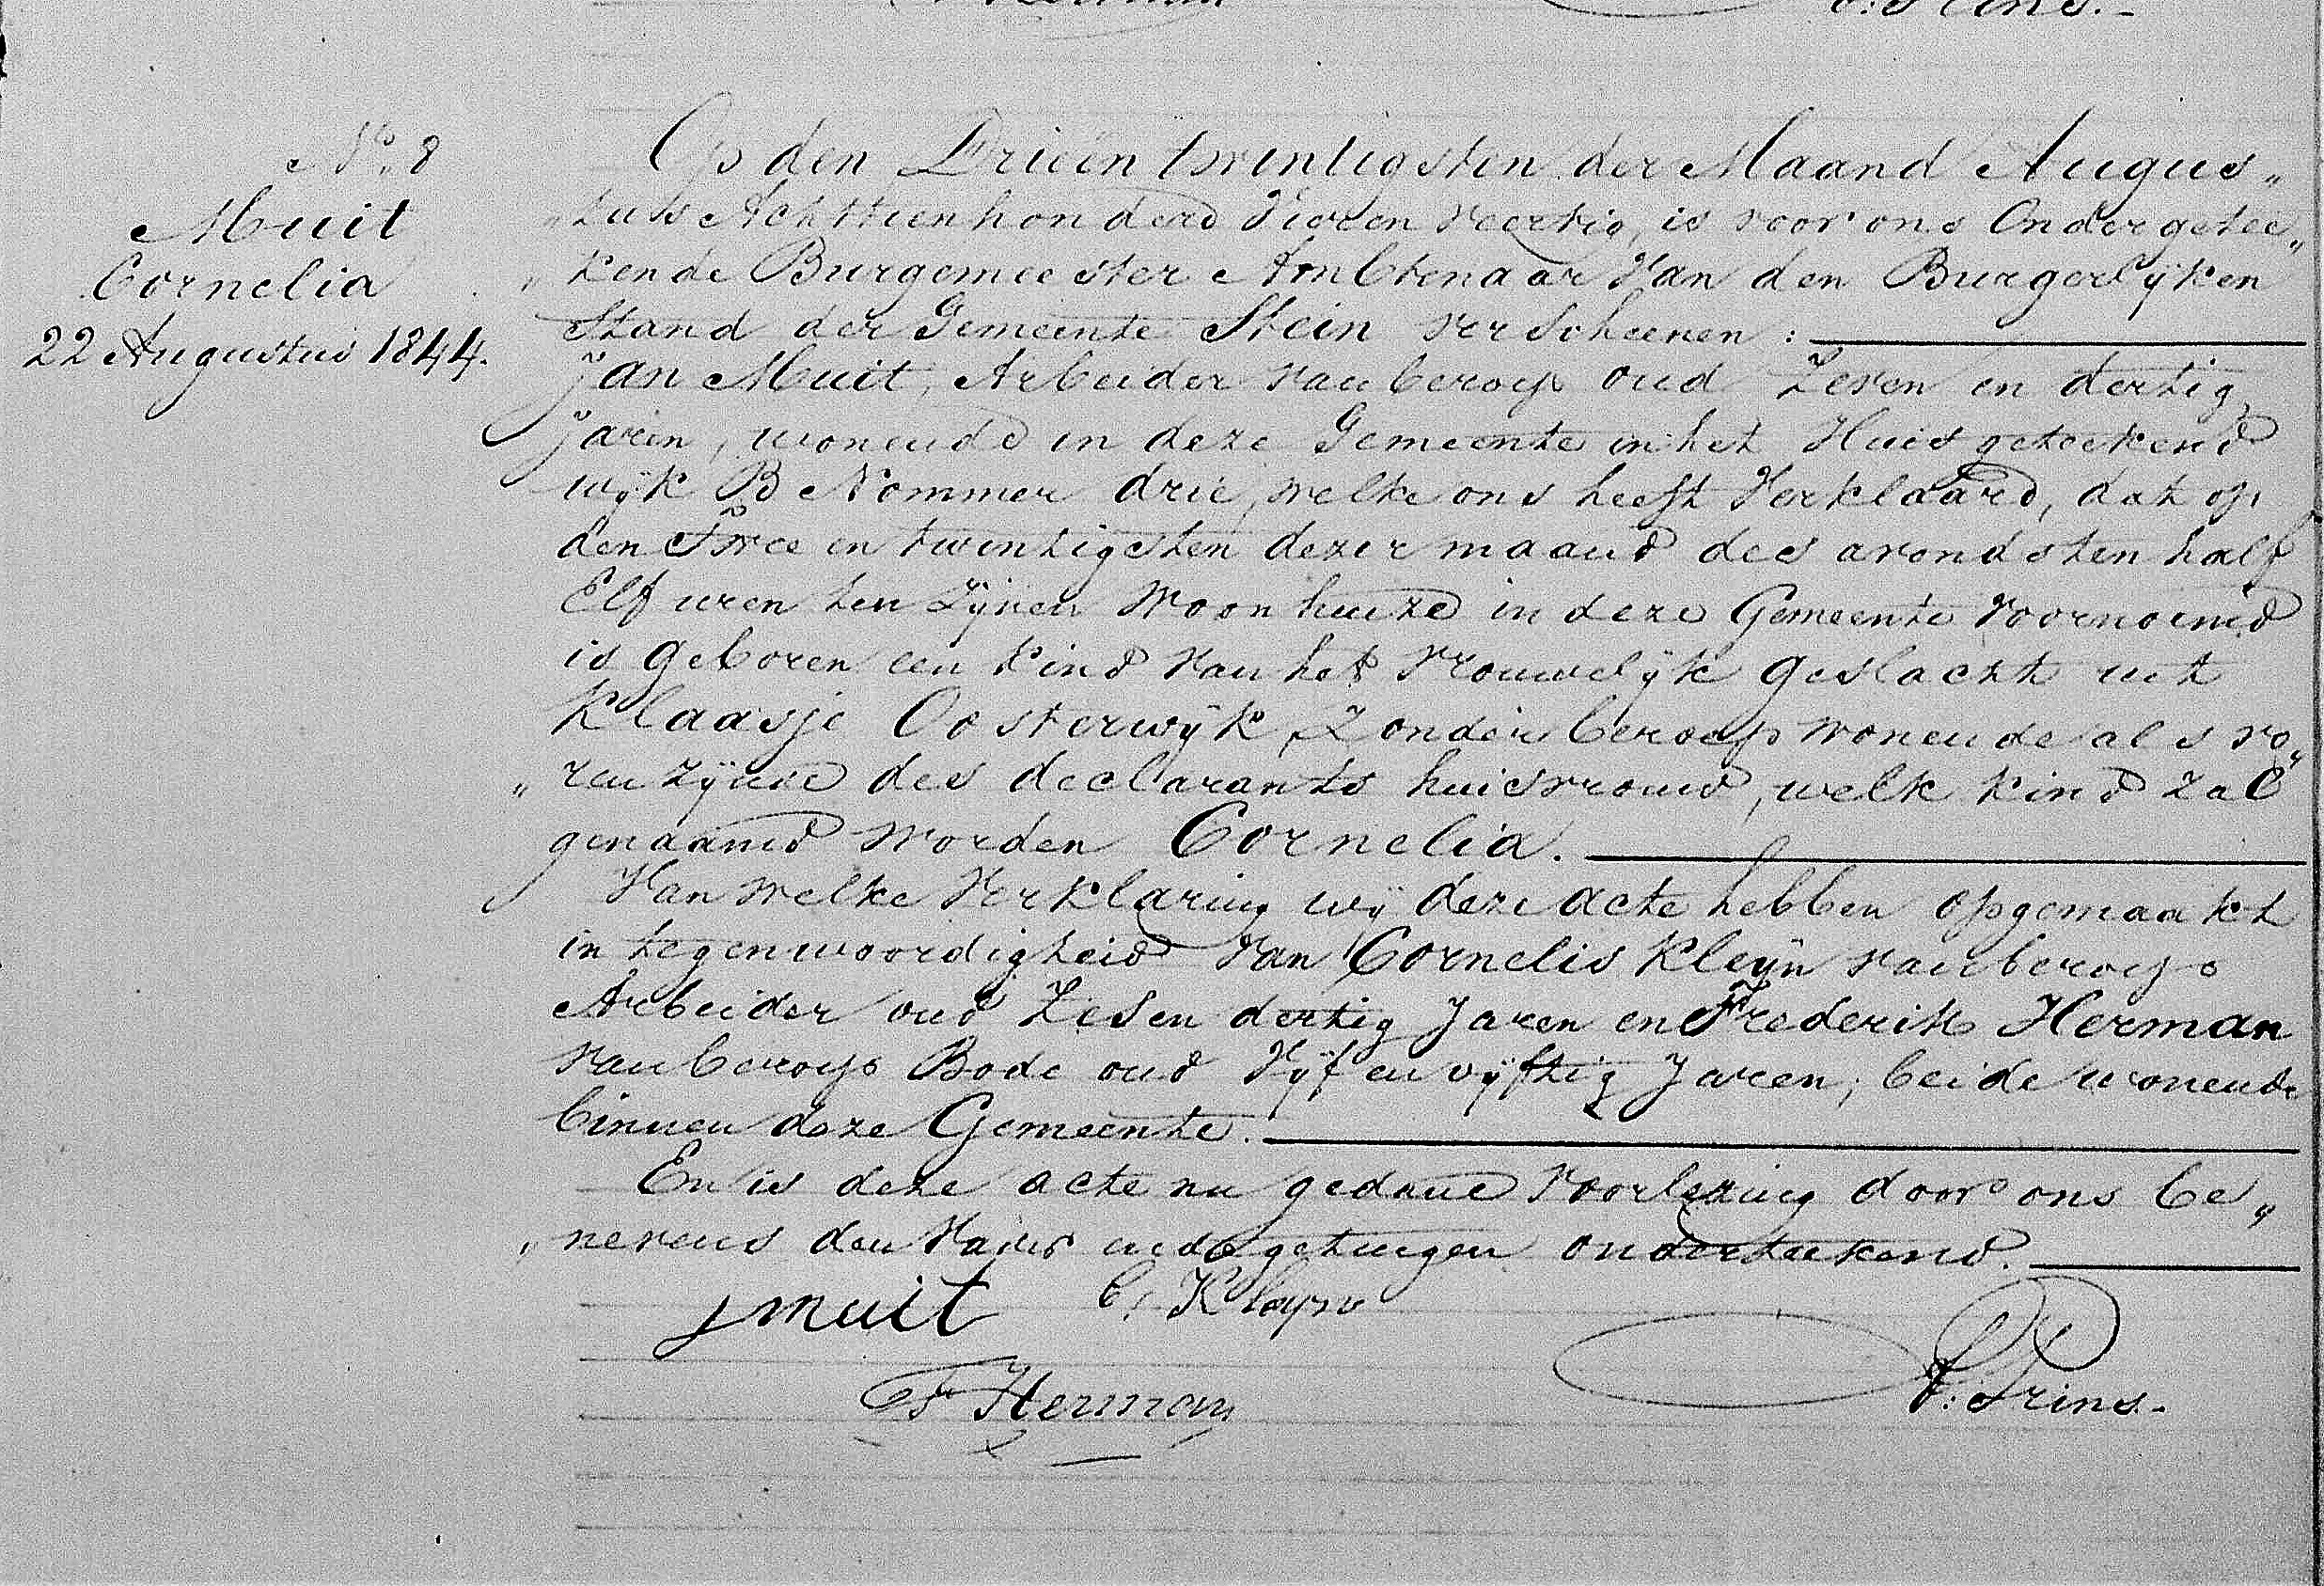 No. 8
Muit
Cornelia
22 Augustus 1844.
Op den Drieen twintigsten der Maand Augus„
„tus Achttienhonderd Vieren veertig, is voor ons Ondergetee„
„kende Burgemeester Ambtenaar Van den Burgerlyken
Stand der Gemeente Stein verscheenen :
Jan Muit, Arbeider van beroep oud Zeven en dertig
Jaren, wonende in deze Gemeente in het Huis geteekend
wyk B Nommer drie, welke ons heeft Verklaard, dat op
den Twee en twintigsten dezer maand des avonds ten half
Elf uren ten Zynen Woonhuize in deze Gemeente Voornoemd
is geboren een kind van het Vrouwelyk geslacht uit
Klaasje Oosterwyk, Zonder beroep wonende als vo„
„ren zynde des declarants huisvrouw, welk kind zal
genaamd worden Cornelia.
Van welke Verklaring wy deze acte hebben opgemaakt
in tegenwoordigheid Van Cornelis Kleyn van beroep
Arbeider oud Zesen dertig Jaren en Frederik Herman
van beroep Bode oud Vyf en vyftig Jaren, beide wonende
binnen deze Gemeente.
En is deze acte na gedane Voorlezing door ons be„
„nevens den Vader en de getuigen onderteekend.
J Muit C, Kleyn
F Herman
V: Prins.